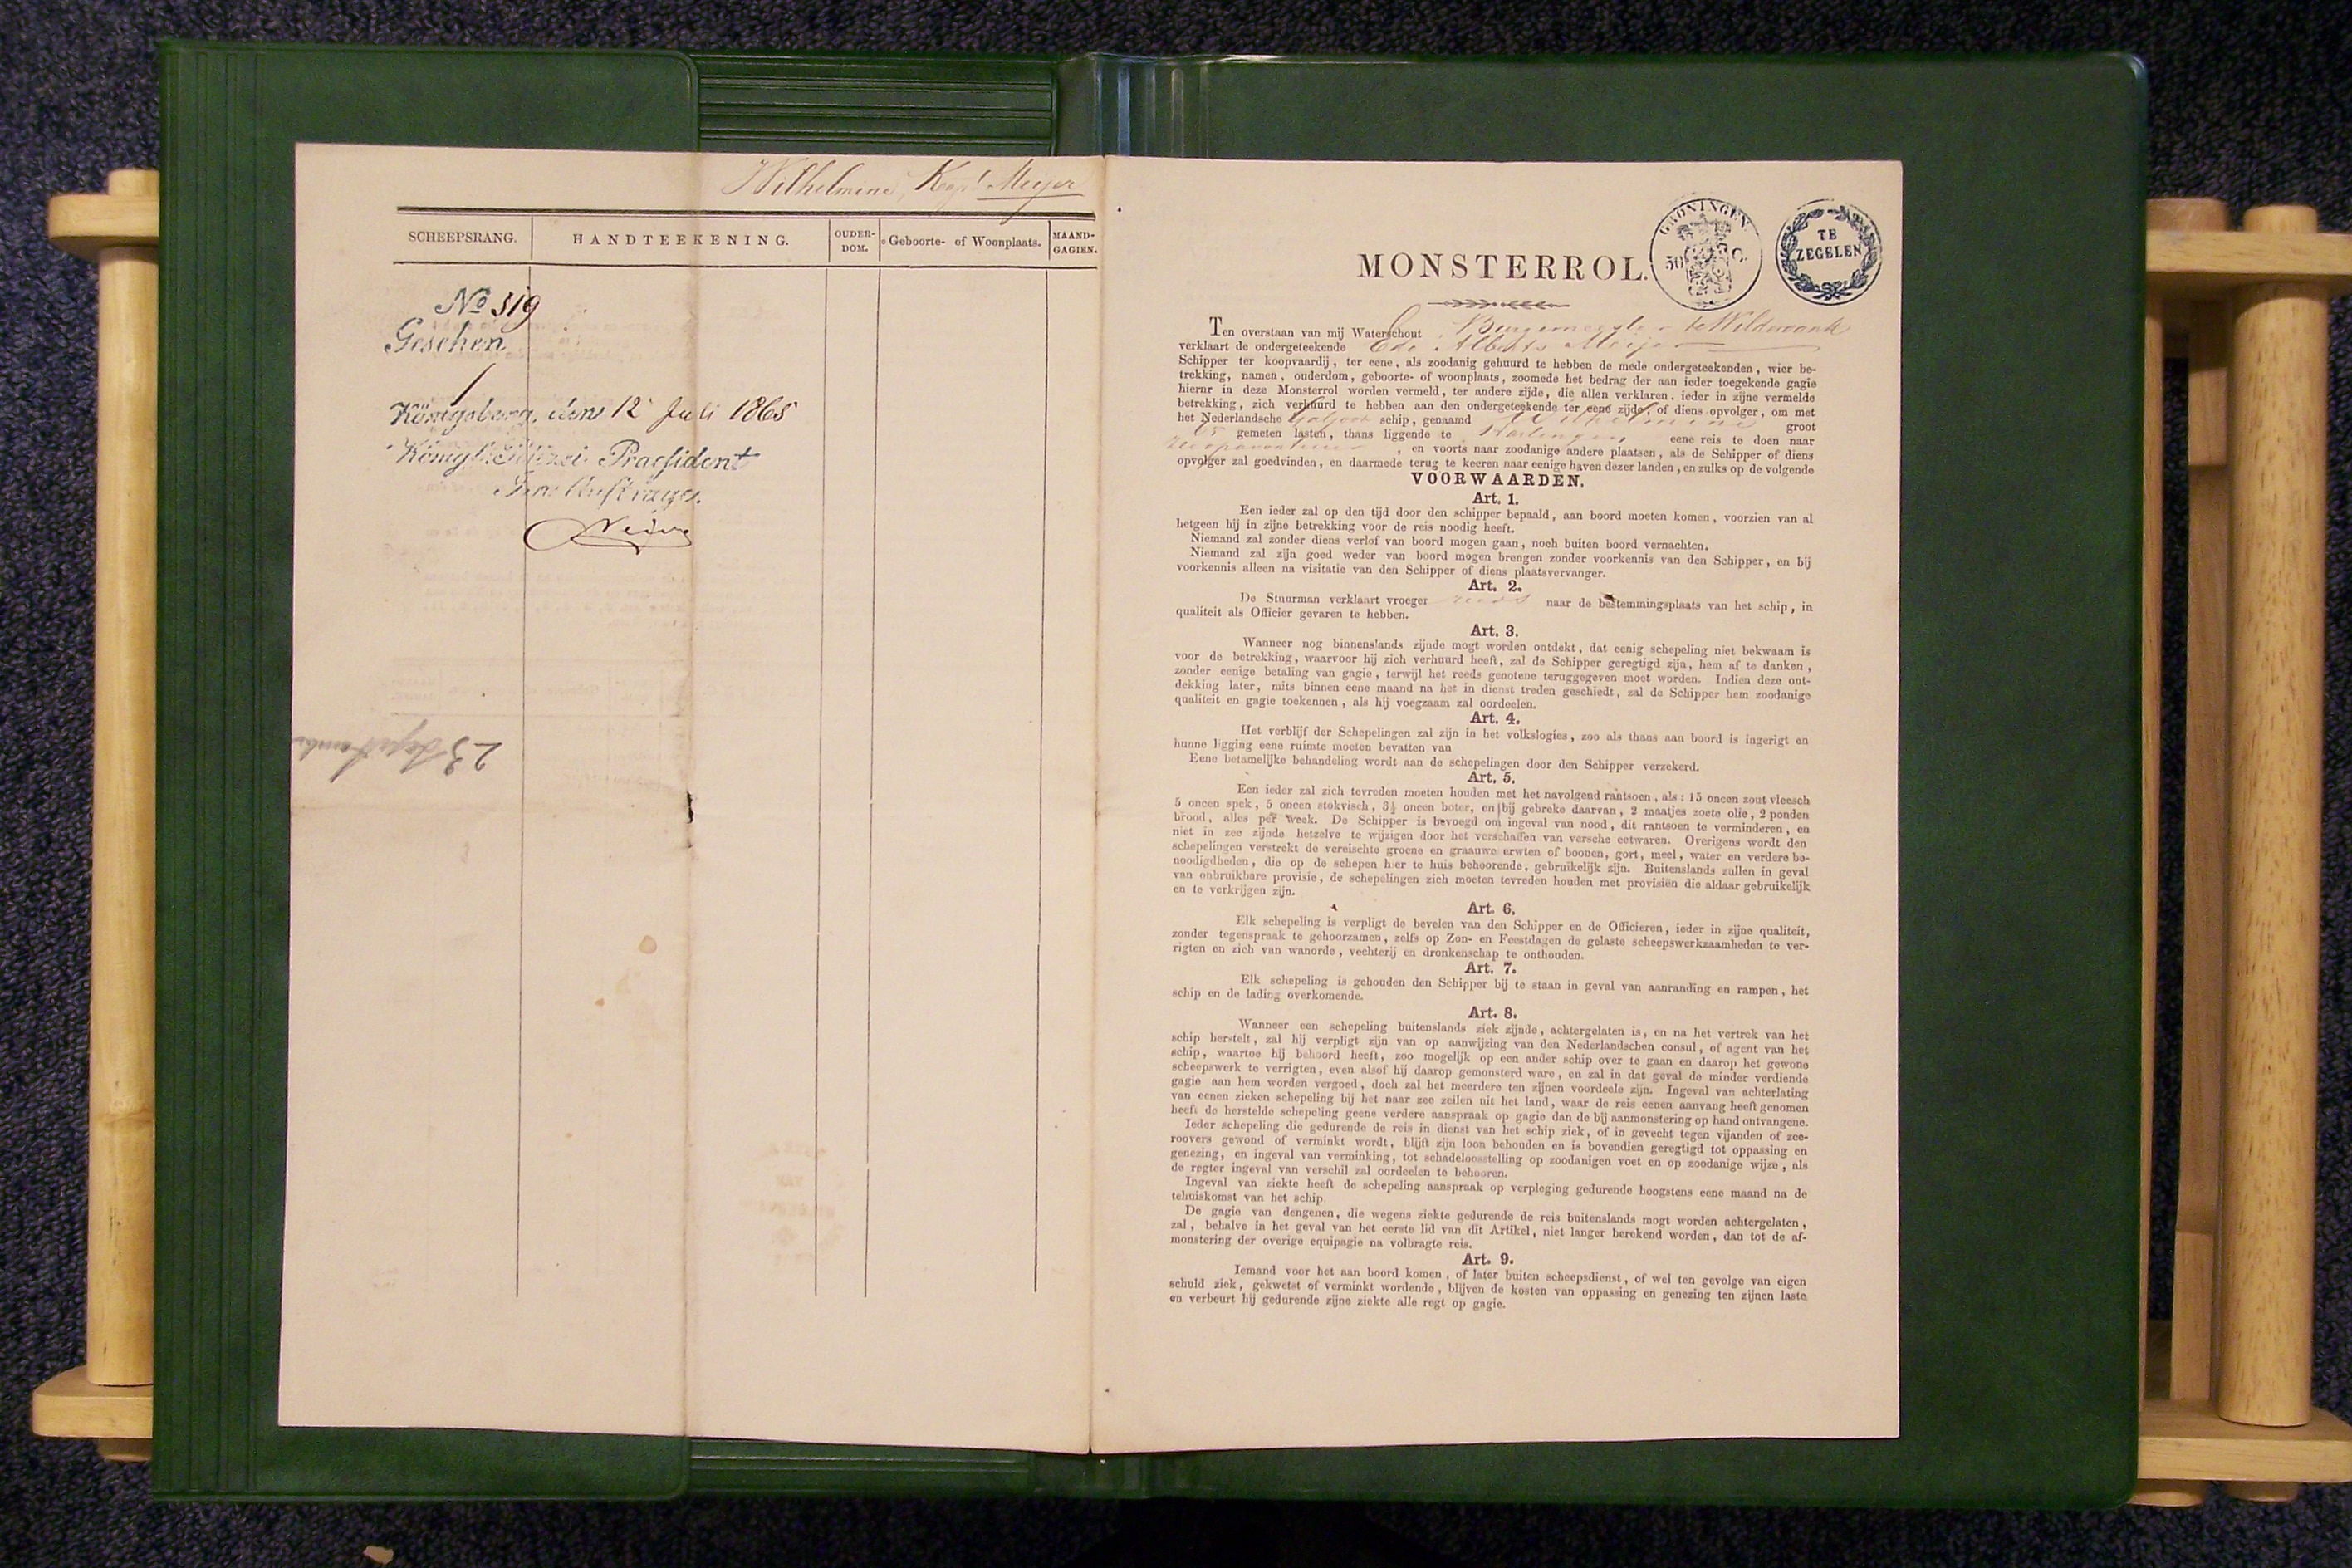 Wilhelmine, Kapt Meijer
SCHEEPSRANG. HANDTEEKENING. OUDER-DOM. Geboorte- of Woonplaats. MAAND-GAGIEN.
No 519
Gesehen
Königsberg, den 12 Juli 1865
Königl. Polizei Praesident
23 September
GRONINGEN
50 C.
TE
ZEGELEN
MONSTERROL.
Ten overstaan van mij Waterschout Burgemeester te Wildervank
verklaart de ondergeteekende Ede Alberts Meijer
Schipper ter koopvaardij, ter eene, als zoodanig gehuurd te hebben de mede ondergeteekenden, wier be-
trekking, namen, ouderdom, geboorte- of woonplaats, zoomede het bedrag der aan ieder toegekende gagie
hierur in deze Monsterrol worden vermeld, ter andere zijde, die allen verklaren, ieder in zijne vermelde
betrekking, zich verhuurd te hebben aan den ondergeteekende ter eene zijde, of diens opvolger, om met
het Nederlandsche schip, genaamd Wilhelmine groot
gemeten lasten, thans liggende te Harlingen eene reis te doen naar
, en voorts naar zoodanige andere plaatsen, als de Schipper of diens
opvolger zal goedvinden, en daarmede terug te keeren naar eenige haven dezer landen, en zulks op de volgende
VOORWAARDEN.
Art. 1.
Een ieder zal op den tijd door den schipper bepaald, aan boord moeten komen, voorzien van al
hetgeen hij in zijne betrekking voor de reis noodig heeft.
Niemand zal zonder diens verlof van boord mogen gaan, noch buiten boord vernachten.
Niemand zal zijn goed weder van boord mogen brengen zonder voorkennis van den Schipper, en bij
voorkennis alleen na visitatie van den Schipper of diens plaatsvervanger.
Art. 2.
De Stuurman verklaart vroeger reeds naar de bestemmingsplaats van het schip, in
qualiteit als Officier gevaren te hebben.
Art. 3.
Wanneer nog binnenslands zijnde mogt worden ontdekt, dat eenig schepeling niet bekwaam is
voor de betrekking, waarvoor hij zich verhuurd heeft, zal de Schipper geregtigd zijn, hem af te danken,
zonder eenige betaling van gagie, terwijl het reeds genotene teruggegeven moet worden. Indien deze ont-
dekking later, mits binnen eene maand na het in dienst treden geschiedt, zal de Schipper hem zoodanige
qualiteit en gagie toekennen, als hij voegzaam zal oordeelen.
Art. 4.
Het verblijf der Schepelingen zal zijn in het volkslogies, zoo als thans aan boord is ingerigt en
hunne ligging eene ruimte moeten bevatten van
Eene betamelijke behandeling wordt aan de schepelingen door den Schipper verzekerd.
Art. 5.
Een ieder zal zich tevreden moeten houden met het navolgend rantsoen, als: 15 oncen zout vleesch
5 oncen spek, 5 oncen stokvisch, 3½ oncen boter, en bij gebreke daarvan, 2 maatjes zoete olie, 2 ponden
brood, alles per week. De Schipper is bevoegd om ingeval van nood, dit rantsoen te verminderen, en
niet in zee zijnde hetzelve te wijzigen door het verschaffen van versche eetwaren. Overigens wordt den
schepelingen verstrekt de vereischte groene en graauwe erwten of boonen, gort, meel, water en verdere be-
noodigdheden, die op de schepen hier te huis behoorende, gebruikelijk zijn. Buitenslands zullen in geval
van onbruikbare provisie, de schepelingen zich moeten tevreden houden met provisiën die aldaar gebruikelijk
en te verkrijgen zijn.
Art. 6.
Elk schepeling is verpligt de bevelen van den Schipper en de Officieren, ieder in zijne qualiteit,
zonder tegenspraak te gehoorzamen, zelfs op Zon- en Feestdagen de gelaste scheepswerkzaamheden te ver-
rigten en zich van wanorde, vechterij en dronkenschap te onthouden.
Art. 7.
Elk schepeling is gehouden den Schipper bij te staan in geval van aanranding en rampen, het
schip en de lading overkomende.
Art. 8.
Wanneer een schepeling buitenslands ziek zijnde, achtergelaten is, en na het vertrek van het
schip herstelt, zal hij verpligt zijn van op aanwijzing van den Nederlandschen consul, of agent van het
schip, waartoe hij behoord heeft, zoo mogelijk op een ander schip over te gaan en daarop het gewone
scheepswerk te verrigten, even alsof hij daarop gemonsterd ware, en zal in dat geval de minder verdiende
gagie aan hem worden vergoed, doch zal het meerdere ten zijnen voordeele zijn. Ingeval van achterlating
van eenen zieken schepeling bij het naar zee zeilen uit het land, waar de reis eenen aanvang heeft genomen
heeft de herstelde schepeling geene verdere aanspraak op gagie dan de bij aanmonstering op hand ontvangene.
Ieder schepeling die gedurende de reis in dienst van het schip ziek, of in gevecht tegen vijanden of zee-
roovers gewond of verminkt wordt, blijft zijn loon behouden en is bovendien geregtigd tot oppassing en
genezing, en ingeval van verminking, tot schadeloosstelling op zoodanigen voet en op zoodanige wijze, als
de regter ingeval van verschil zal oordeelen te behooren.
Ingeval van ziekte heeft de schepeling aanspraak op verpleging gedurende hoogstens eene maand na de
tehuiskomst van het schip.
De gagie van dengenen, die wegens ziekte gedurende de reis buitenslands mogt worden achtergelaten,
zal, behalve in het geval van het eerste lid van dit Artikel, niet langer berekend worden, dan tot de af-
monstering der overige equipagie na volbragte reis.
Art. 9.
Iemand voor het aan boord komen, of later buiten scheepsdienst, of wel ten gevolge van eigen
schuld ziek, gekwetst of verminkt wordende, blijven de kosten van oppassing en genezing ten zijnen laste
en verbeurt hij gedurende zijne ziekte alle regt op gagie.